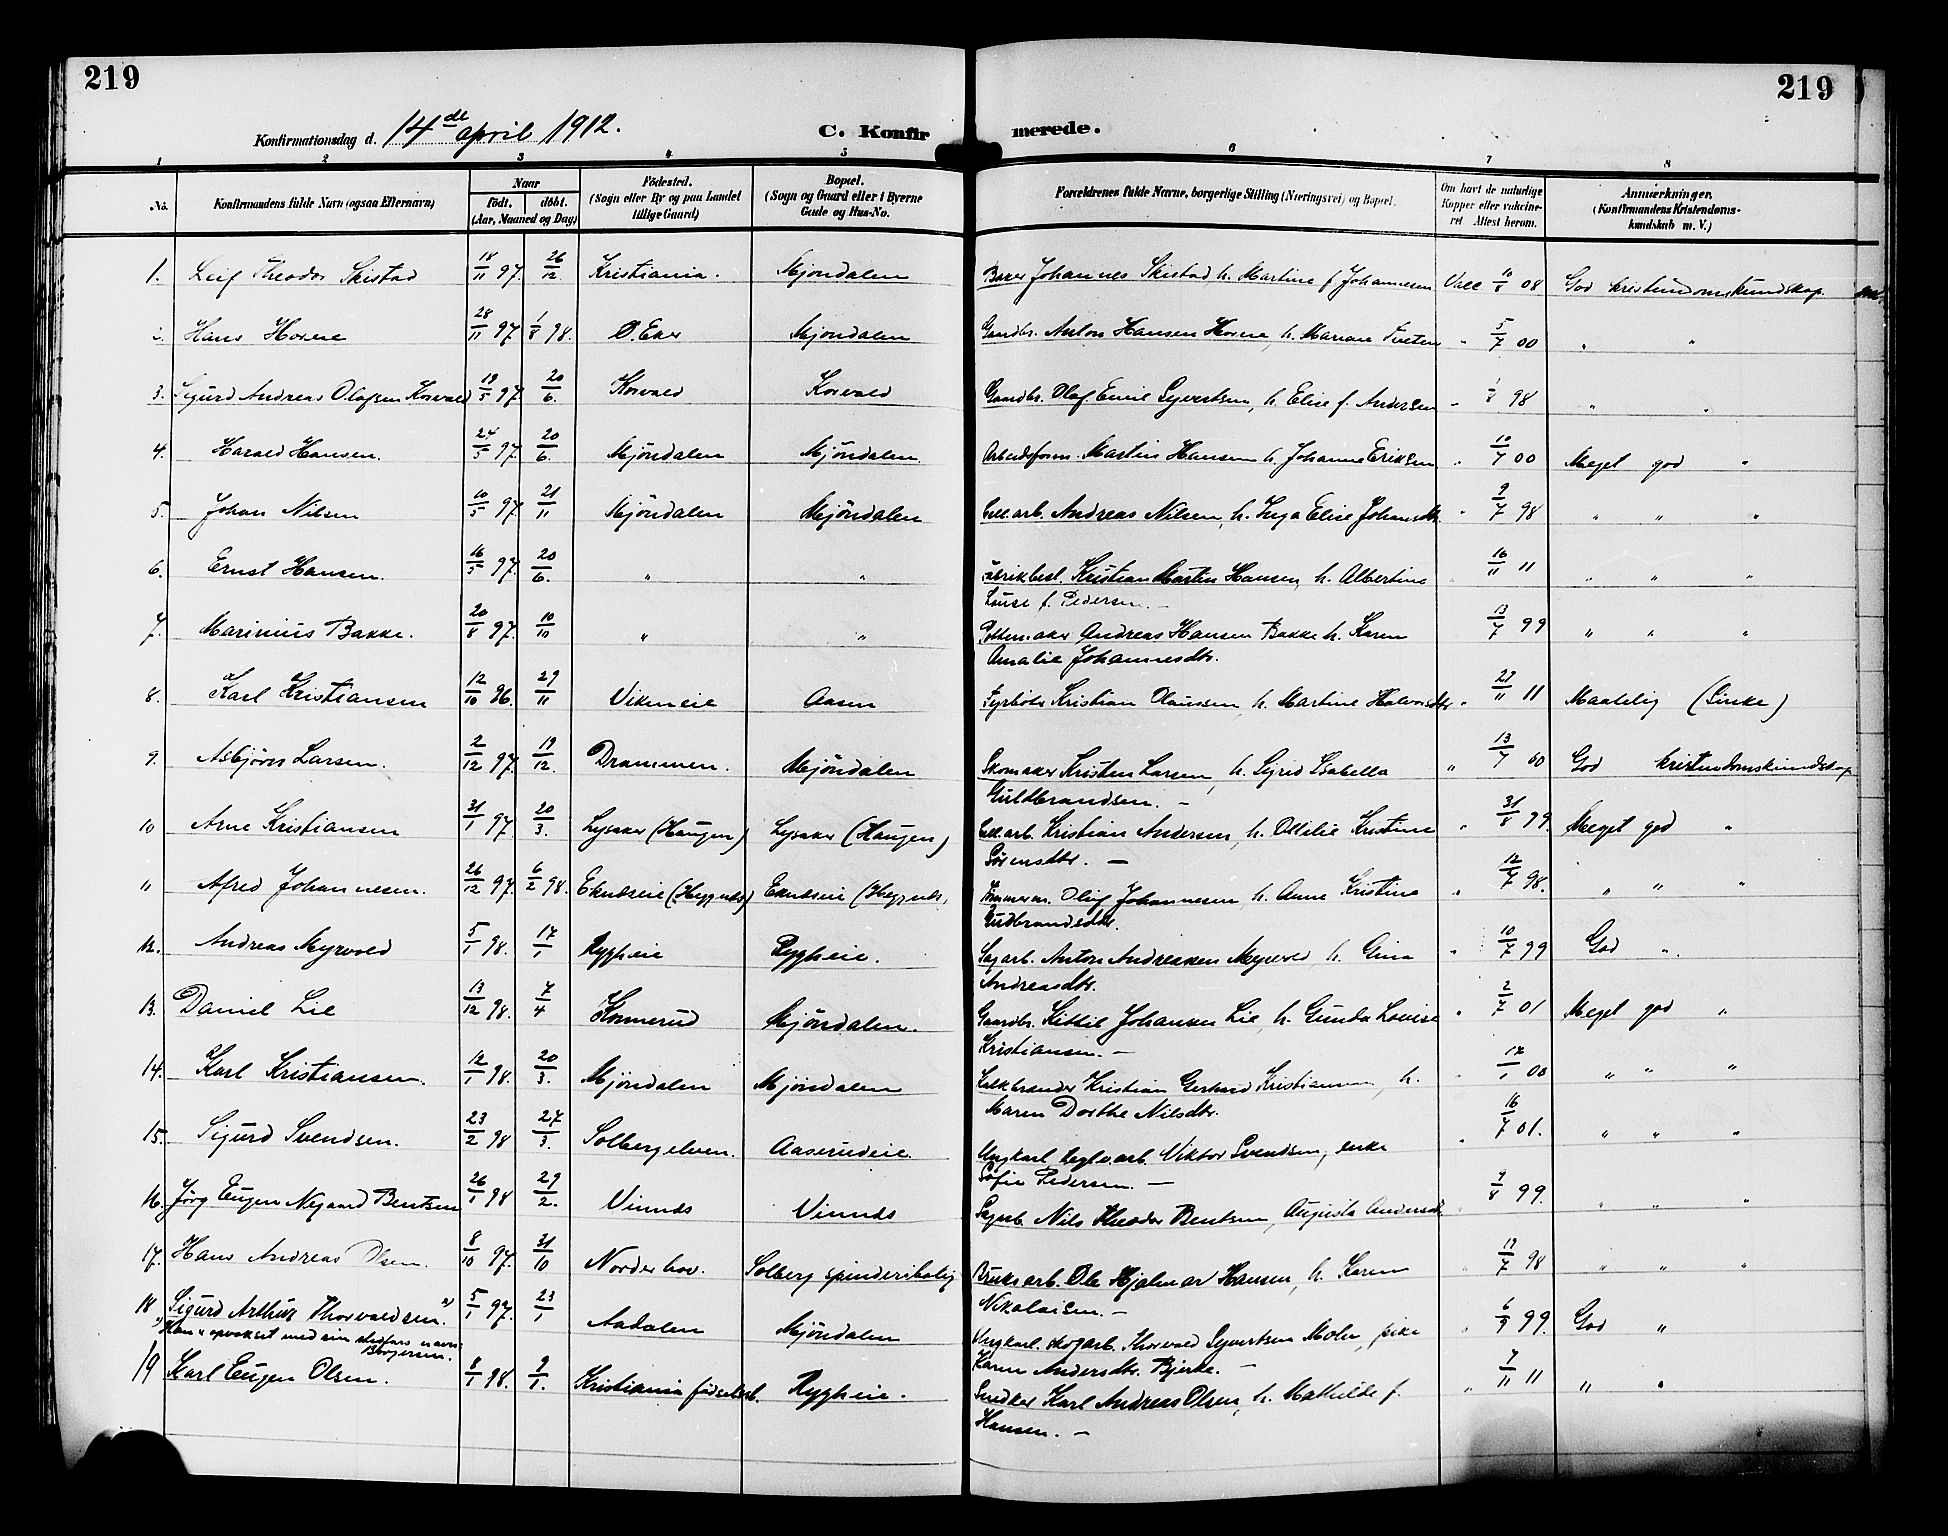 219
219
Konfirmationsdag d. 14de april 1912.
C. Konfirmerede.
1 2 3 4 5 6 7 8
No. Konfirmandens fulde Navn (ogsaa Efternavn) Naar født. døbt. (Aar, Maaned og Dag) Fødested. (Sogn eller By og paa Landet tillige Gaard) Bopæl. (Sogn og Gaard eller i Byerne Gade og Hus-No. Forældrenes fulde Navne, borgerlige Stilling (Næringsvei) og Bopæl. Om havt de naturlige Kopper eller vakcineret Attest herom. Anmærkninger. (Konfirmandens Kristendomskundskab m. V.)
1. Leif Theodor Skistad 18/11 97. 26/12 Kristiania. Mjöndalen Baker Johannes Skistad, h. Martine f Johannesen Vacc 10/8 08 God kristendomskundskap.
2. Hans Horne 28/11 97 1/8 98. Ø. Eker Mjöndalen Gaardbr. Anton Hansen Horne, h. Mariane Tveten " 5/7 00 " "
3. Sigurd Andreas Olafsen Korvald 19/5 97 20/6. Korvald Korvald Gaardbr. Olaf Emil Syvertsen, h. Elise f. Andersen " 1/8 98 " "
4. Harald Hansen. 24/5 97 20/6. Mjöndalen Mjöndalen. Arbeidsform. Martin Hansen h. Johanne Eriksen " 10/7 00 Meget god "
5. Johan Nilsen 10/5 97 21/11 Mjöndalen Mjöndalen Cell.arb. Andreas Nilsen, h. Inga Elise Johansdtr. " 9/7 98 " " "
6. Ernst Hansen. 16/5 97. 20/6. " " Fabrikbest. Kristian Martin Hansen, h. Albertine
Louise f. Pedersen. — 16/11 11 " " "
7. Marinius Bakke. 20/8 97. 10/10 " " Pottemaker Andreas Hansen Bakke h. Karen
Amalie Johannesdtr. 13/7 99 " " "
8. Karl Kristiansen 12/10 96. 29/11 Vikeneie Aasen Fyrböter Kristian Olaussen, h. Martine Halvorsdtr " 27/11 11 Maatelig (Sinke)
9. Asbjörn Larsen. 2/12 97. 19/12. Drammen. Mjöndalen Skomaker Kristen Larsen, h. Sigrid Isabella
Guldbrandsen. — " 13/7 00 God kristendomskundskap
10 Arne Kristiansen 31/1 97 20/3. Lysaker (Haugen) Lysaker (Haugen) Cell.arb. Kristian Andersen, h. Ottilie Kristine
Sörensdtr. — " 31/8 99. Meget god "
11 Afred Johannesen. 26/12 97. 6/2 98. Eknæseie Eknæseie Tømmerm. Oluf Johannesen, h. Anne Kristine
Gudbrandsdtr. " 12/7 98. " " "
12. Andreas Myrvold 5/1 98. 17/1 Rygheie Rygheie. Sagarb. Anton Andreassen h. Gina
Andreasdtr. " 10/7 99 God "
13. Daniel Lie 13/12 98. 7/4 Konnerud Mjöndalen. Gaardbr. Kittil Johansen Lie, h. Gunda Lovise
Kristiansen. — " 2/7 01 Meget god "
14. Karl Kristiansen. 12/1 98. 20/3. Mjöndalen Mjöndalen Kalkbrænder Kristian Gerhard Kristiansen, h.
Maren Dorthe Nilsdtr. " 17/1 00 " " "
15. Sigurd Svendsen. 23/2 98 27/3. Solbergelven. Aaserudeie. Ungkarl teglv.arb. Viktor Svendsen, enke
Sofie Pedersen. — " 16/7 01. " " "
16. Jörg Eugen Nygaard Bentsen 26/1 98 29/2. Vinnds Vinnds Sagarb. Nils Theodor Bentsen, Augusta " 7/8 99. " " "
17. Hans Andreas Olsen. 8/10 97. 31/10 Norderhov. Solberg spinderibolig Bruksarb. Ole Hjalmar Hansen, h. Karen
Nikolaisen. — " 19/7 98 " " "
18 Sigurd Arthur Thorvaldsen. *) 5/1 97. 23/1 Aadalen Mjöndalen Ungkarl. skogarb. Thorvald Syvertsen Moln, pike
Karen Andersdtr. Bjerke. — " 6/9 99. God "
*) Han er opvokset med sin stedfars navn:
Borgersen.
19 Karl Eugen Olsen. 8/1 98. 9/1. Kristiania födselsst. Rygheie. Snedker Karl Andreas Olsen, h. Mathilde f.
Hansen. — " 7/11 11 " "